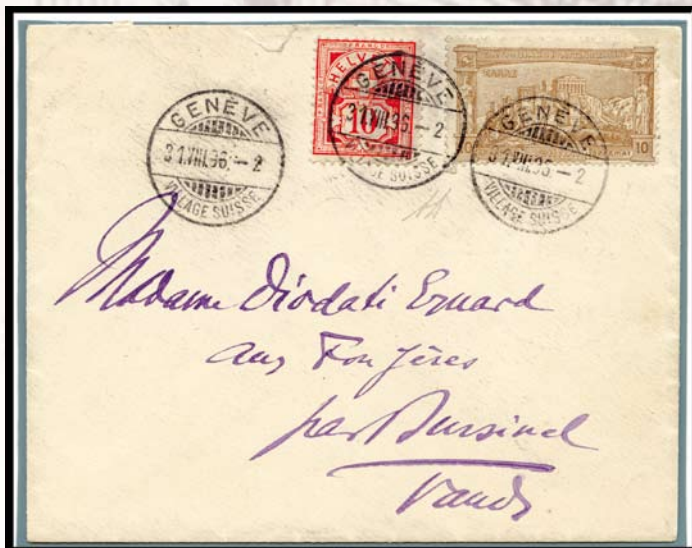 GENÈVE
31.VIII.96.–2
VILLAGE SUISSE
HELVETIA
10
GENÈVE
31.VIII.96.–2
VILLAGE SUISSE
10
GENÈVE
31.VIII.96.–2
VILLAGE SUISSE
Madame Diodati Eynard
aux Fougères
par Bursinel
Vaud